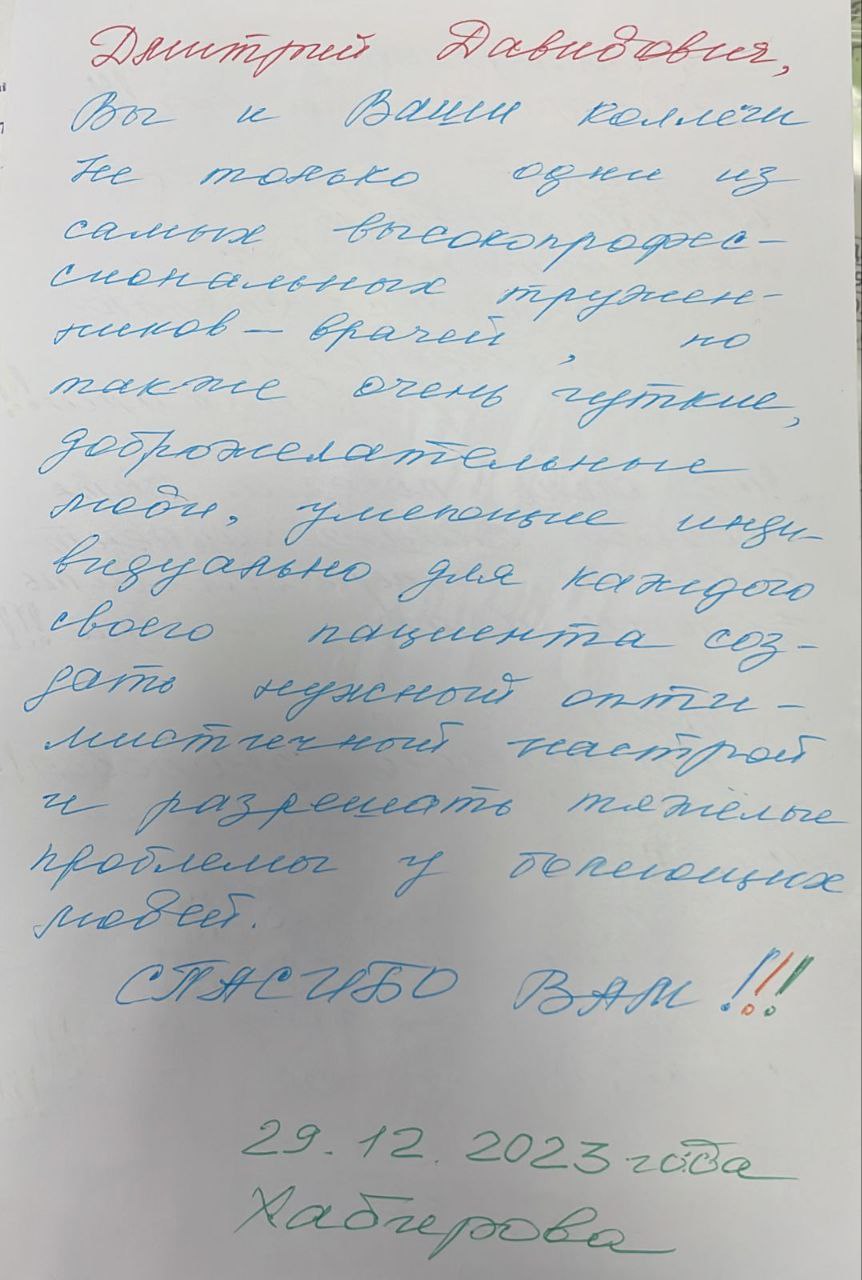 Дмитрий Давидович,
Вы и Ваши коллеги
не только одни из
самых высокопрофес-
сиональных тружен-
ников - врачей, но
также очень чуткие,
доброжелательные
люди, умеющие инди-
видуально для каждого
своего пациента соз-
дать нужный опти-
мистичный настрой
и разрешать тяжёлые
проблемы у болеющих
людей.
СПАСИБО ВАМ !!!
29.12.2023 года
Хабирова